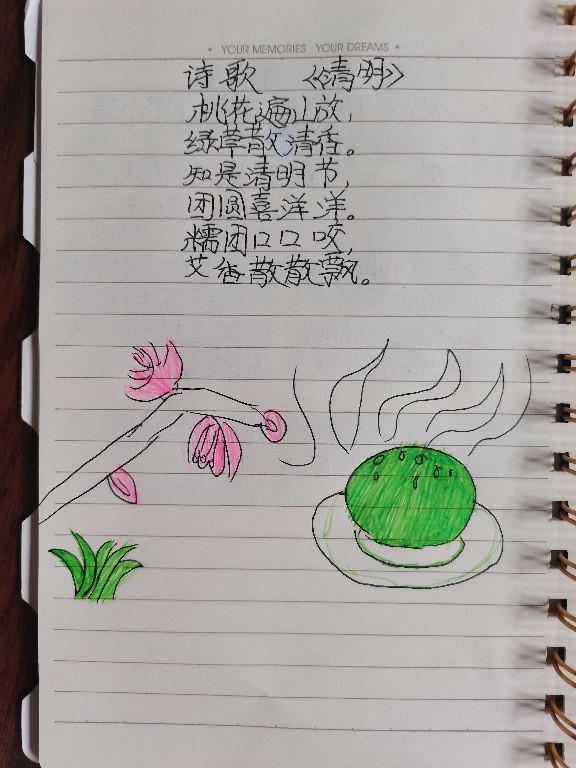 • YOUR MEMORIES YOUR DREAMS •
诗歌 《清明》
桃花遍山放,
绿草散清香。
知是清明节,
团圆喜洋洋。
糯团口口咬,
艾香散散飘。